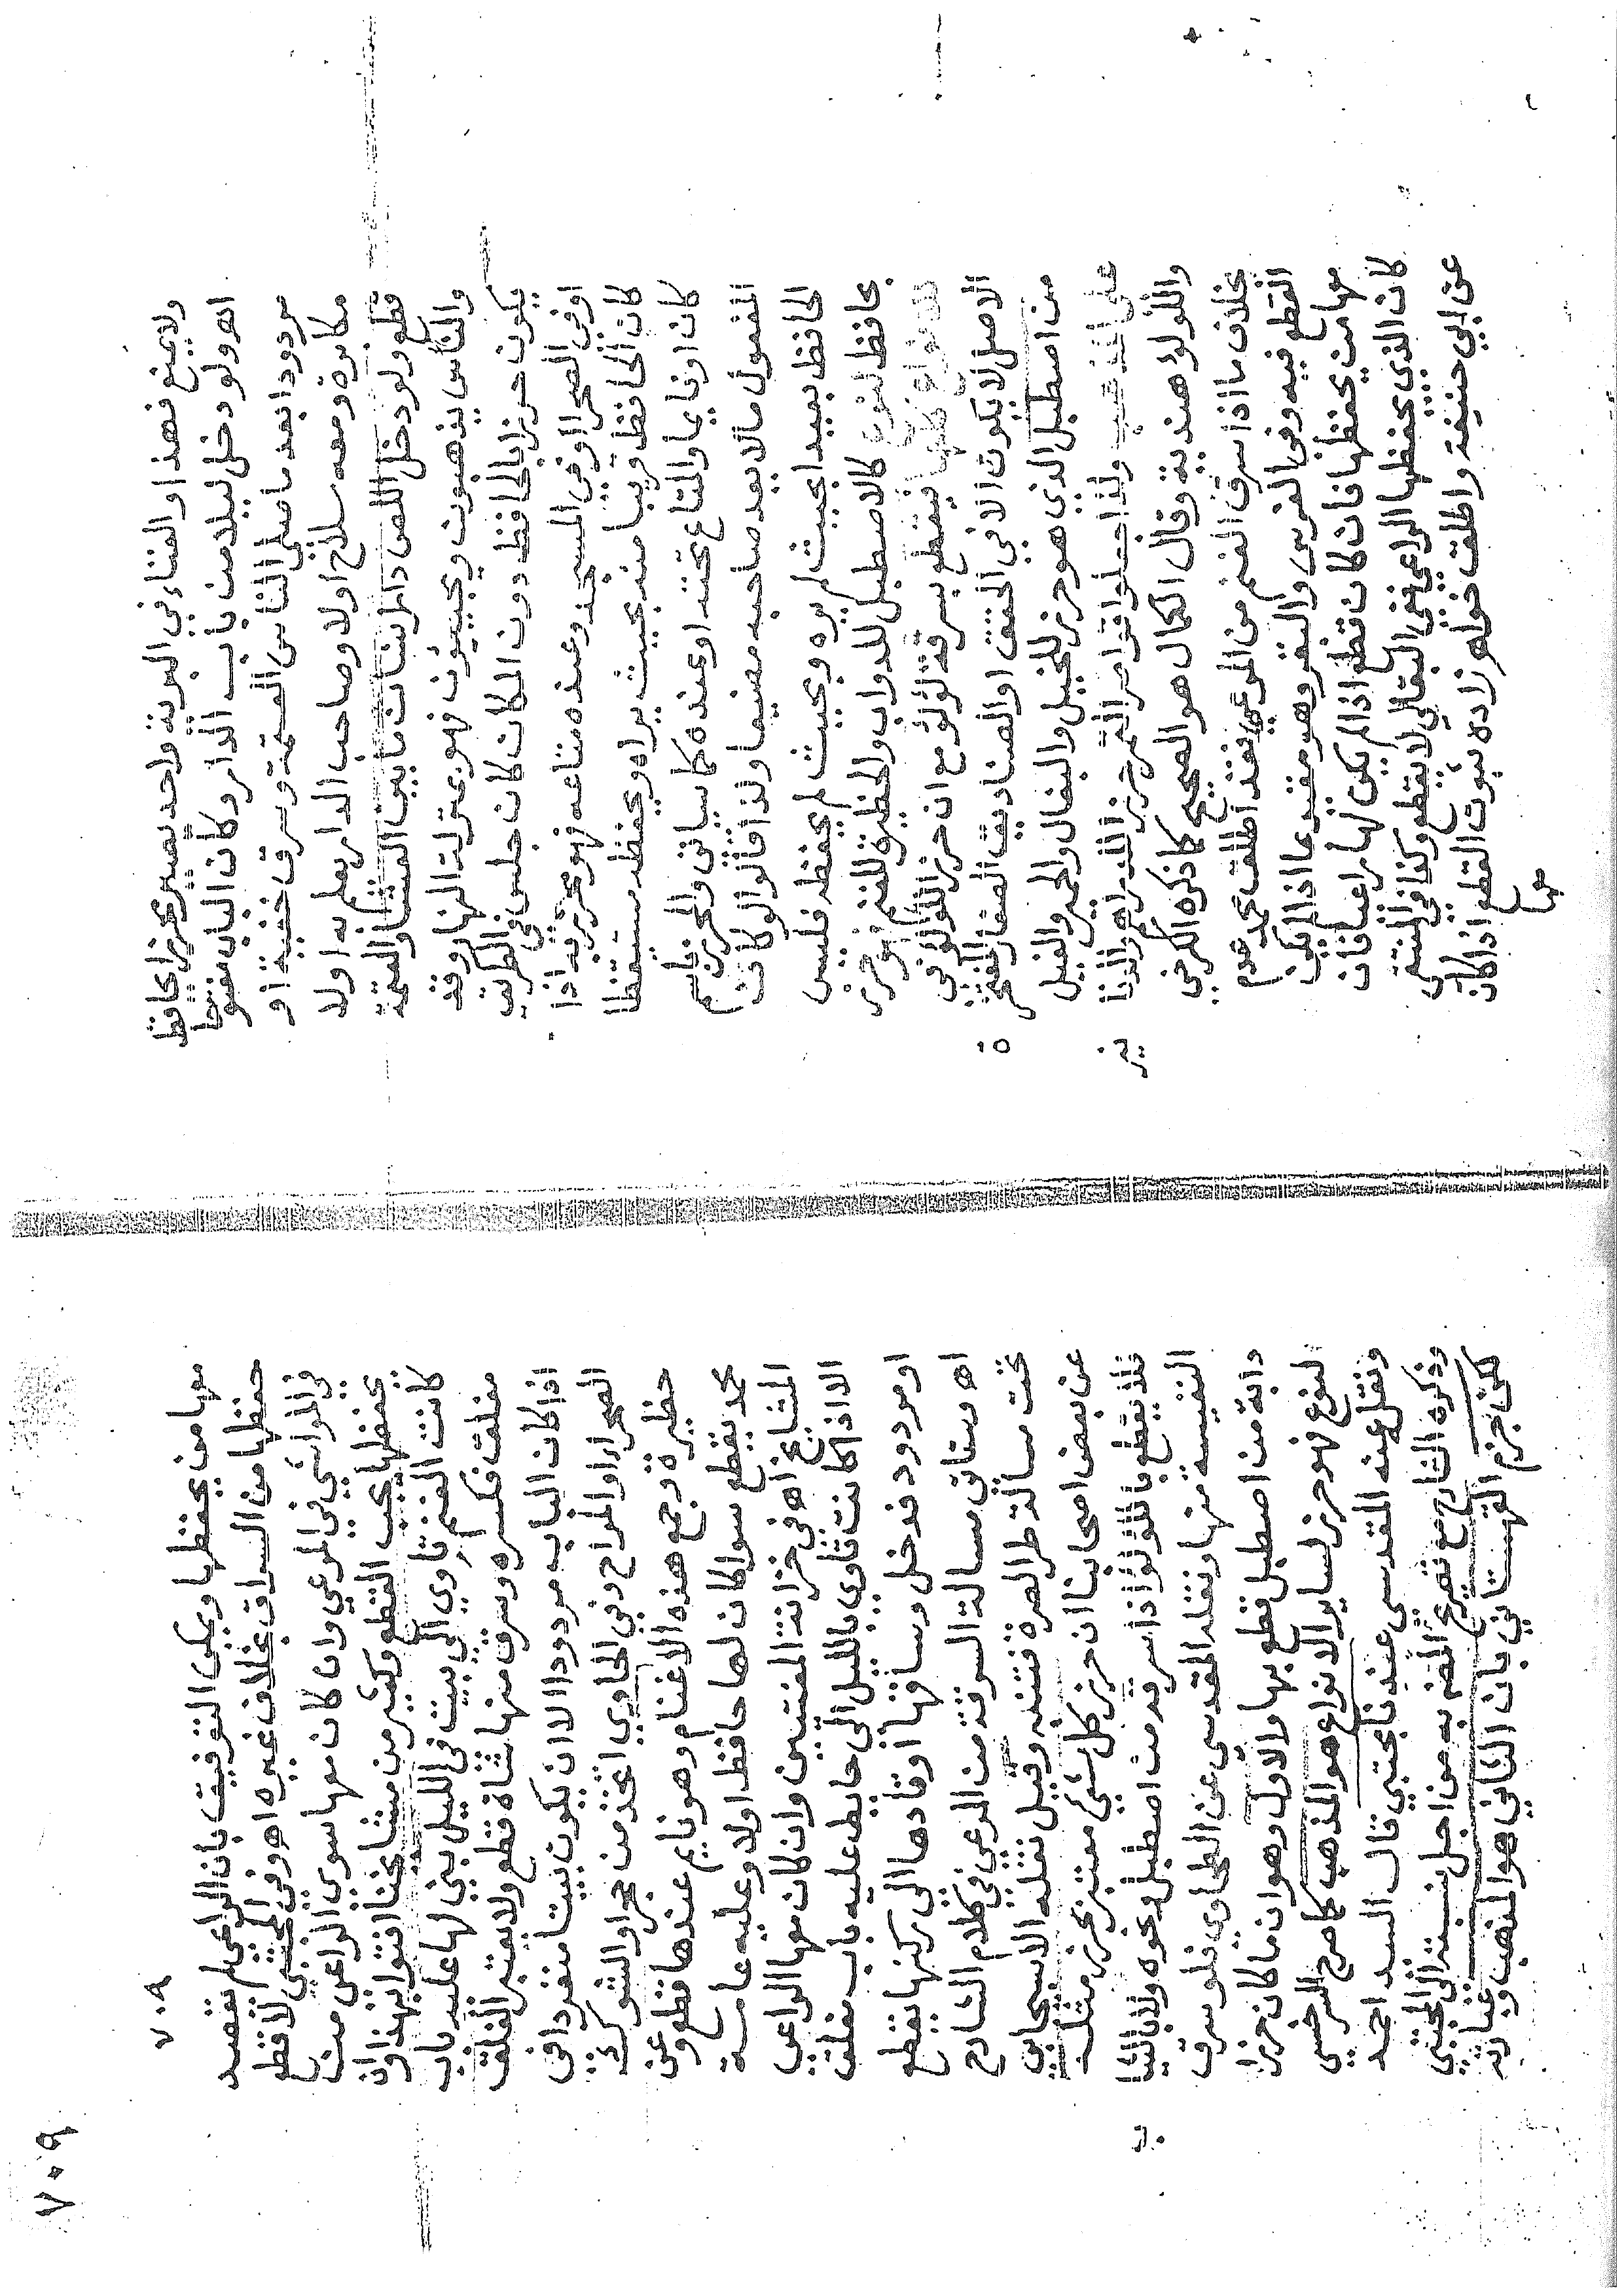 ولا يمنع فهذا والفناء في البرية واحد يصير محرزا بحافظ
اهـ ولو دخل ليلا من باب الدار وكان الباب مفتوحا
مردودا بعد ما صلى الناس العتمة وسرق خفية او
مكابرة ومعه سلاح اولا وصاحب الدار يعلم به اولا
قطع ولو دخل اللص دار انسان ما بين العشا والعتمة
والناس يذهبون ويجيئون فهو بمنزلة النهار وقد
يكون حرزا بالحافظ دون المكان كان جلس في الطريق
او في الصحرا او في المسجد وعنده متاعه فهو محرز به اذا
كان الحافظ قريبا منه بحيث يراه ويحفظه مستيقظا
كان او نايما والمتاع تحته او عنده كما سياتي والمحرز باسم
المفعول ما لا يعد صاحبه مضيعا ولذا قالوا لو كان
الحافظ بعيدا بحيث لم يره وبحيث لم يحفظه فليس
بحافظ لنوع كالاصطبل للدواب والحظيرة للغنم فهو حرز
للانواع كلها فيقطع بسرقة لؤلؤ مع ان حرز اللؤلؤ في
الاصل لا يكون الا في الحقق او الصناديق
من اصطبل الذي هو حرز للخيل والبغال والحمير والفيل
على المذهب ولذا جعلوا التمر حرز للدراهم والدنا
واللؤلؤ هندية وقال الكمال هو الصحيح كما ذكره الكرخي
بخلاف ما اذا سرق الغنم من المرعي فقد اطلق محمد عدم
القطع فيه وفي الفرس والبقر وهو مقيد بما اذا لم يكن
معها من يحفظها فان كان قطع اذا لم يكن لها راعيا فان
كان الذي يحفظها الراعي ففي البقالي لا يقطع وكذا في المنتقى
عن ابي حنيفة واطلق خواهر زاده ثبوت القطع اذا كان
معها
٧٠٩
٧٠٩
معها من يحفظها ويمكن التوفيق بان الراعي لم يقصد
حفظها من السراق بخلاف غيره اهـ وفي المجتبى لا قطع
في المواشي في المرعي وان كان معها سوى الراعي من
يحفظها يجب القطع وكثير من مشايخنا افتوا بهذا وان
كانت الغنم تاوي الى بيت في الليل بني لها عليه باب
مغلق فكسره وسرق منها شاة قطع ولا يعتبر الغلق
اذا كان الباب مردودا الا ان يكون بيتا منفردا في
الصحرا او المراح وفي الحاوي اتخذ من حجر او الشوك
حظيرة وجمع هذه الاغنام وهو نايم عندها قطع وعن
محمد يقطع سوا كان لها حافظ اولا وعليه عامة
المشايخ اهـ في خزانة المفتيين وان كان معها الراعي
الا اذا كانت تاوي بالليل الى حايط عليه باب مغلق
او مردود فدخل وساقها او قادها الى ركنها يقطع
اهـ وستاتي مسالة السرقة من المرعي في كلام الشارح
تحت مسالة طر الصرة فتنبه وقيل نقله الاسبيجابي
عن بعض اصحابنا ان حرز كل شي معتبر بحرز مثله
فلا يقطع باللؤلؤ اذا سرقه من اصطبل ونحوه
النفيسة منها ونقله المقدسي عن الطحاوي فلو سرق
دابة من اصطبل قطع بها والاول وهو ان ما كان حرزا
لنوع فهو حرز لساير الانواع هو المذهب كما صرح السرخسي
ونقل عنه المقدسي عندنا مجتبى قال السيد احمد
وذكره الشارح مع تصريح المتن به من اجل نسبته الى المجتبى
لكن جزم القهستاني بان الثاني هو المذهب وعبارته